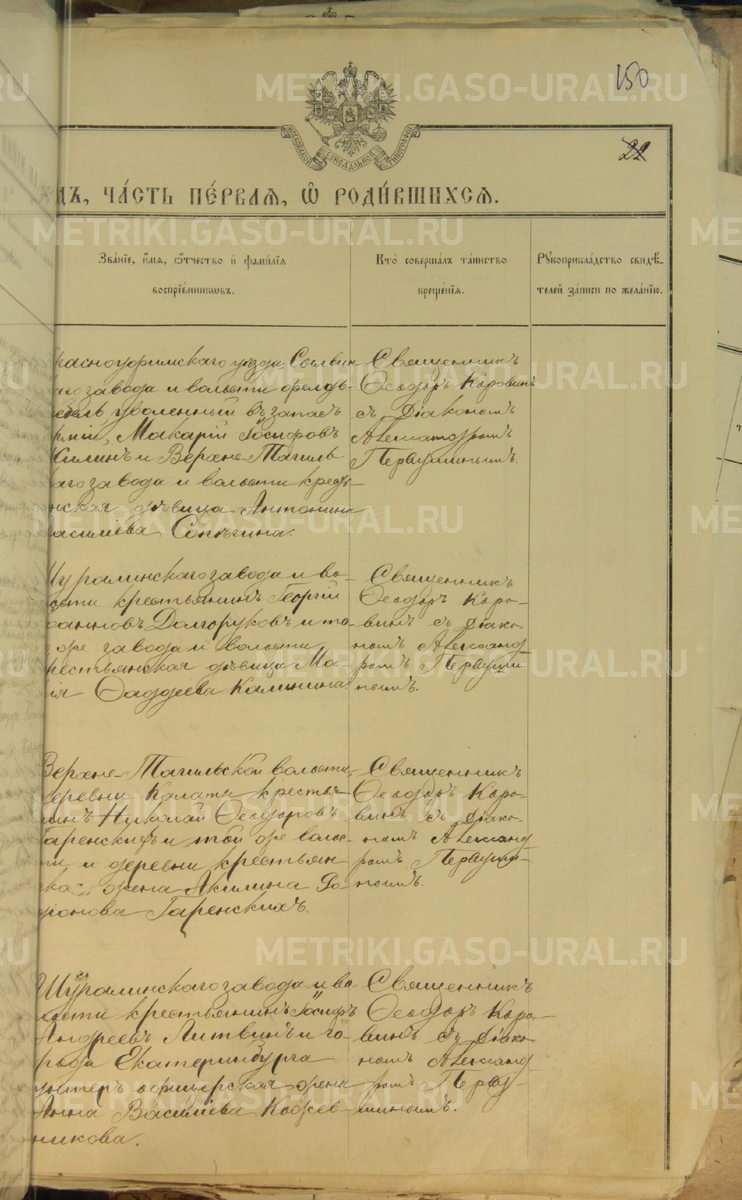 150
22
МОСКОВСКОЙ СѴНОДАЛЬНОЙ ТИПОГРАФІИ
ДЪ, ЧА́СТЬ ПЕ́РВАЯ, Ѡ҆ РОДИ́ВШИХСЯ.
Зва́нїе, и҆́мя, ѻ҆́тчество и҆ фами́лїя
воспрїе́мникωвъ.
Кто̀ соверша́лъ та́инство
креще́нїя.
Рꙋкоприкла́дство свидѣ́-
телей за́писи по жела́нїю.
Красноуфимскаго уѣзда, Сылвин
аго завода и волости фельд-
фебель уволенный въ запасъ
арміи, Макарій Іосифовъ
Силинъ и Верхне-Тагиль
аго завода и волости кресть-
янская дѣвица Антонина
Василіева Сопѣгина.
Священникъ
Ѳеодоръ Коровинъ
съ діакономъ
Александромъ
Первушинымъ.
Шуралинскаго завода и во-
лости крестьянинъ Георгій
Іоанновъ Долгоруковъ и то-
го же завода и волости
крестьянская дѣвица Ма-
рія Ѳаддеева Калинина
Священникъ
Ѳеодоръ Коро-
винъ съ діако-
номъ Александ-
ромъ Первуши
нымъ.
Верхне-Тагильской волости
деревни Калаты кресть-
янинъ Николай Ѳеодоровъ
Гаренскихъ и той же волос-
ти и деревни крестьян-
ская жена Акилина
Гаренскихъ.
Священникъ
Ѳеодоръ Коро-
винъ съ діако-
номъ Александ-
ромъ Первуши-
нымъ.
Шуралинскаго завода и во
лости крестьянинъ Іосифъ
Андреевъ Литвинъ и го-
рода Екатеринбурга
унтеръ офицерская жена
Анна Василіева Кожев-
никова.
Священникъ
Ѳеодоръ Коро-
винъ съ діако-
номъ Александ-
ромъ Перву-
шинымъ.
METRIKI.GASO-URAL.RU